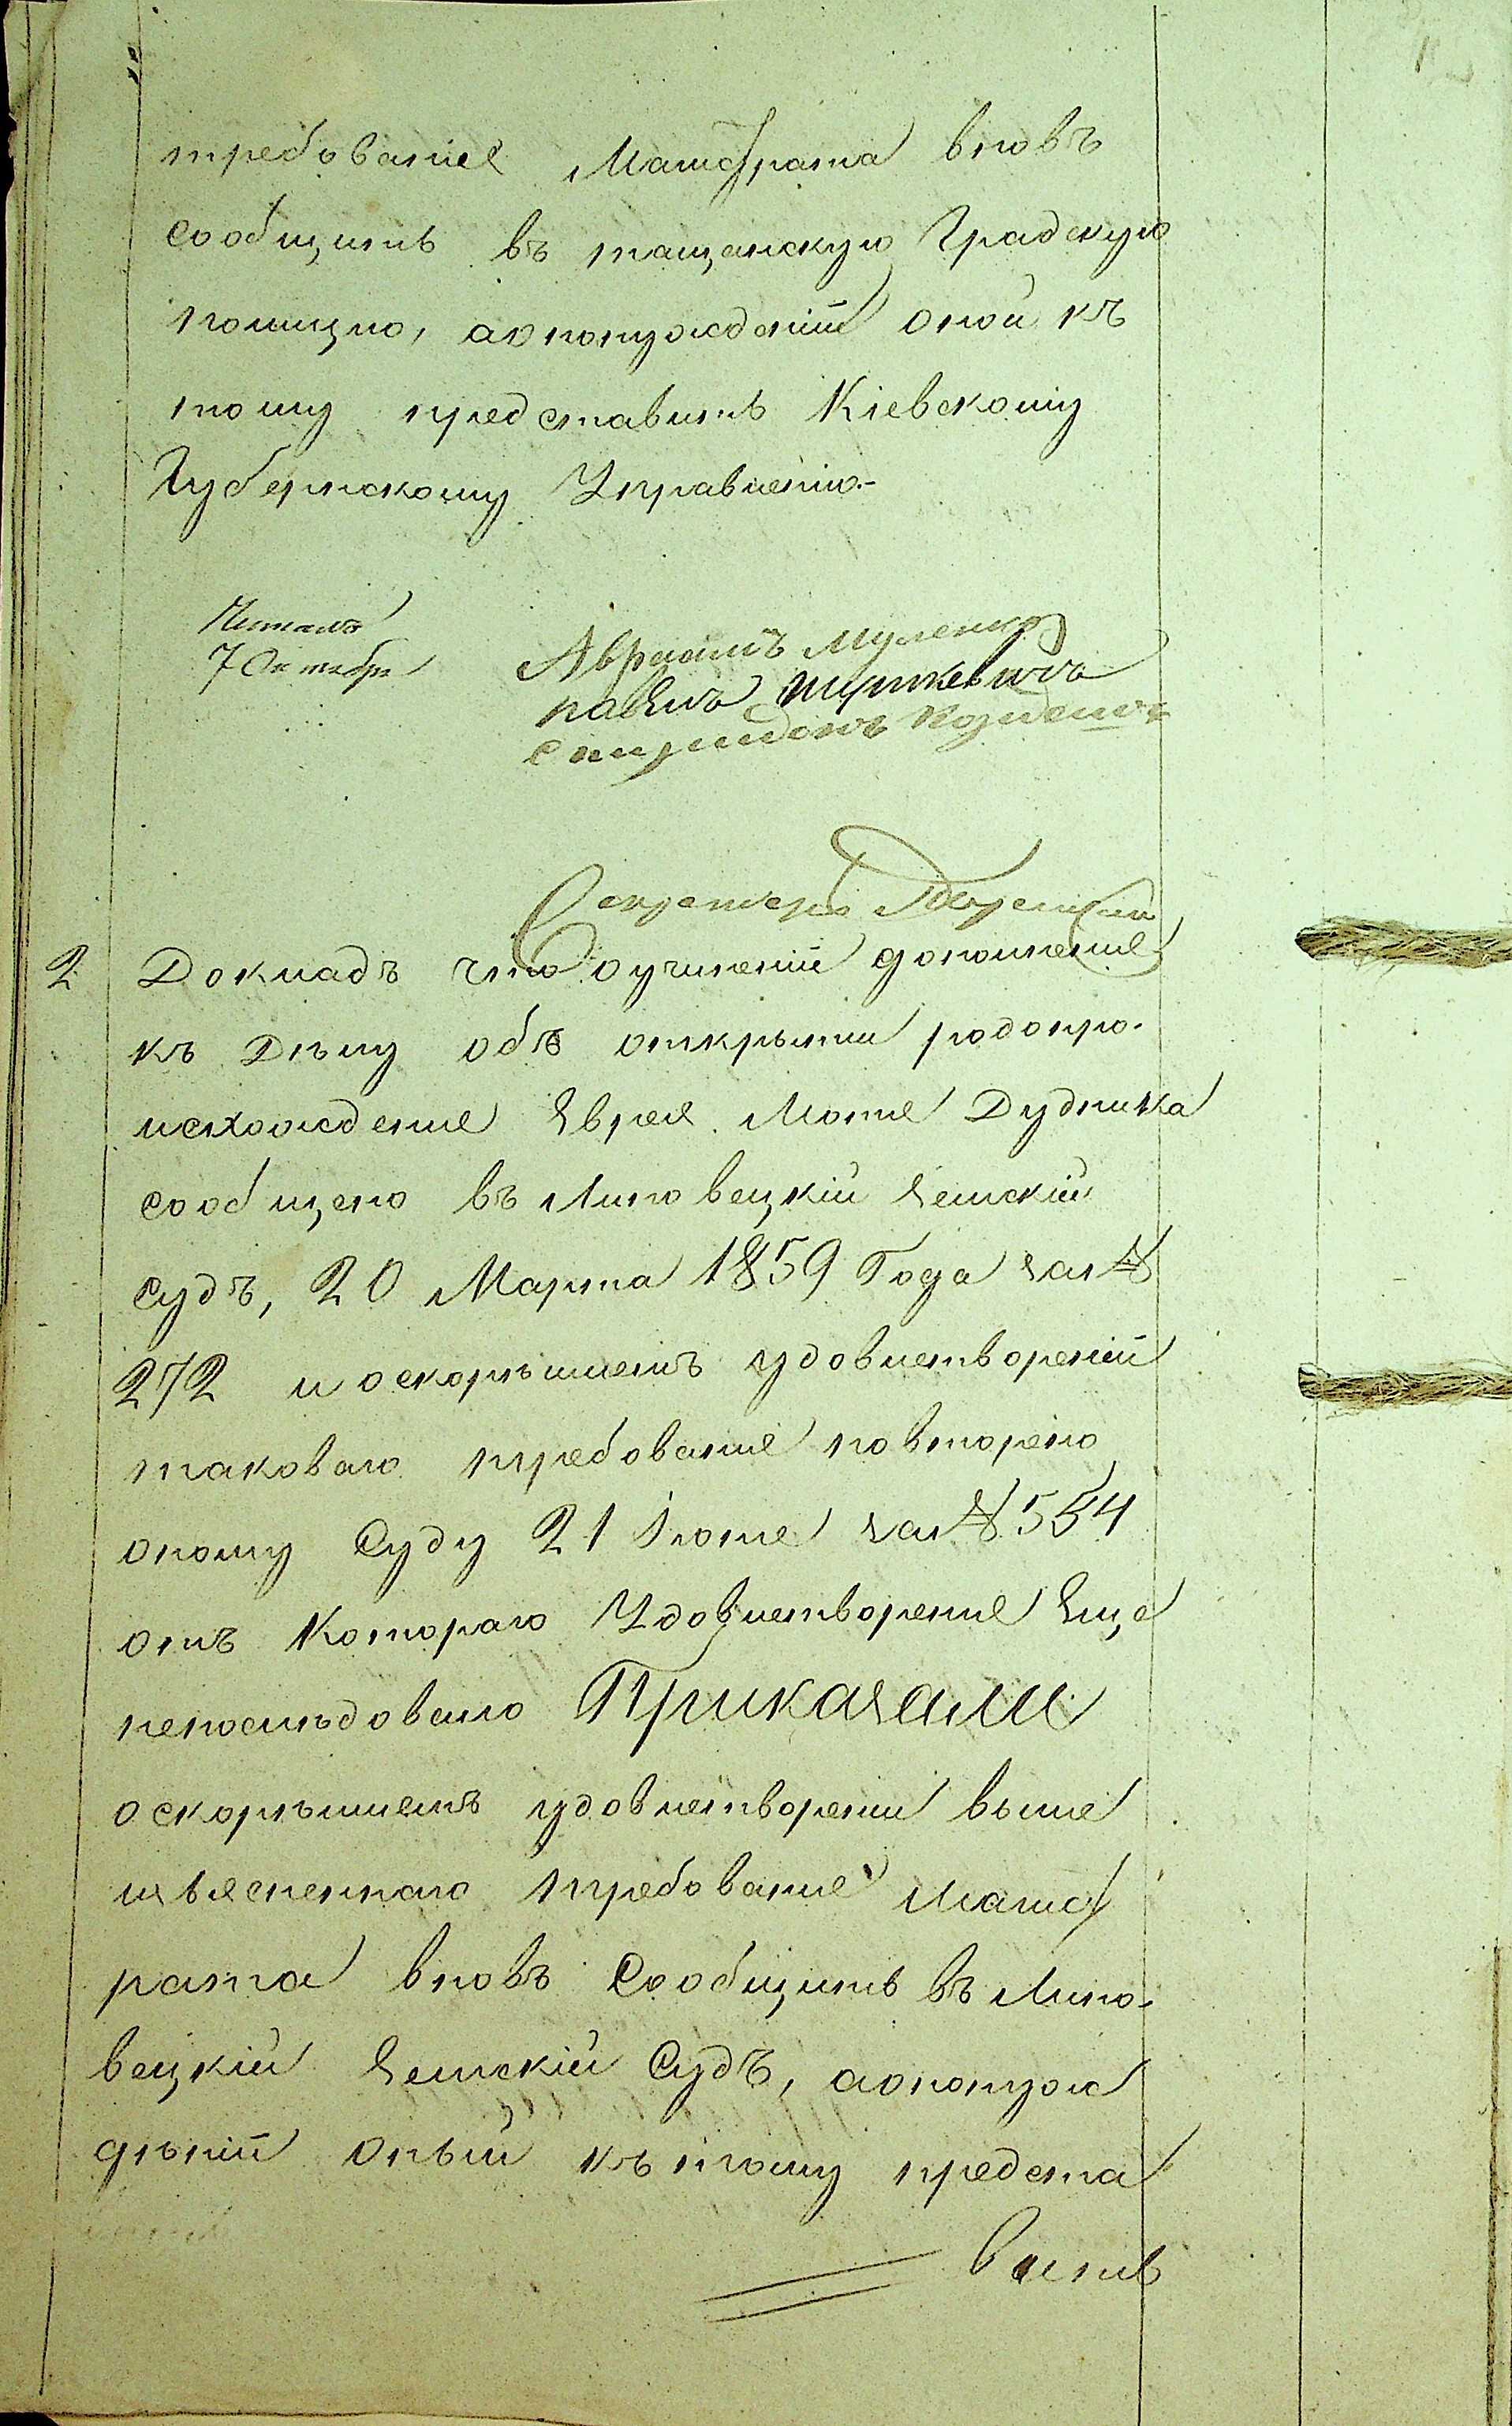 требованіе Магистрата вновъ
сообщить въ таращанскую Градскую
полицію, аопонужденій оной къ
тому представить Кіевскому
Губернскому Управленію.-
Читалъ
7 Октября
Авраамъ
павелъ
спиридонъ
Секретарь
2 Докладъ что оучиненіи дополненіе
къ Дѣлу объ открытіи родопро-
исхожденіе Еврея Моти Дудника
сообщено въ Липовецкій Земскій
Судъ, 20 Марта 1859 Года за №
272 и оскорѣйшемъ удовлетвореній
таковаго требованіе повторено
оному Суду 21 Іюне за № 554
отъ Котораго Удовлетвореніе Еще
непослѣдовало Приказали
оскорѣйшемъ удовлетвореніи выше
изъясненнаго требованіе магист
рата вновъ Сообщить въ Липо-
вецкій Земскій Судъ, аопонуж
дѣній оный къ тому предста
вить